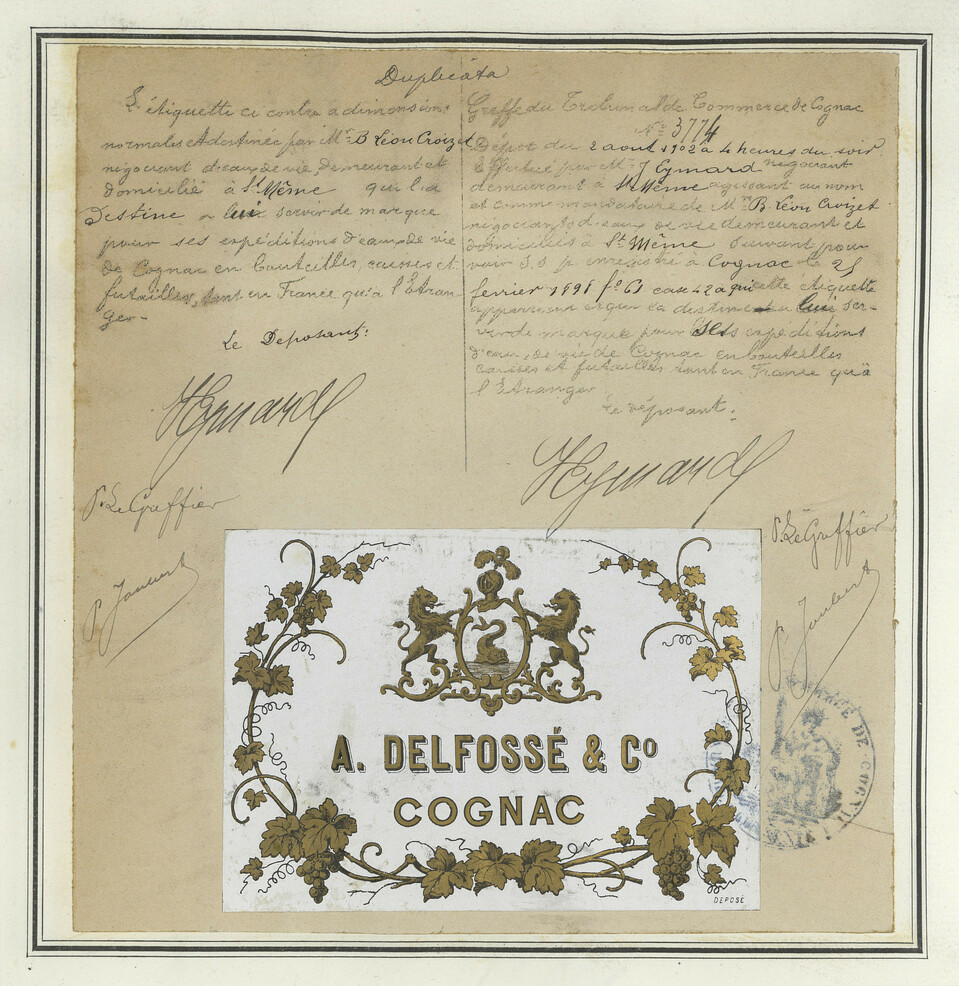 Duplicata
L'étiquette ci contre a dimensions
normales et destinée par Mr B Léon Croizet
négociant d'eaux de vie demeurant et
domicilié à St Même qui la
destine a lui servir de marque
pour ses expéditions d'eaux de vie
de Cognac en bouteilles, caisses et
futailles, tant en France qu'à l'Etran-
ger-
Le Deposant:
HEymard
P. Le Greffier
P Joubert
Greffe du Tribunal de Commerce de Cognac
No 3774
Dépôt du 2 août 1902 à 4 heures du soir
Effectué par Mr J Eymard négociant
demeurant à St Même agissant au nom
et comme mandataire de Mr B. Léon Croizet
négociant d'eaux de vie demeurant et
domiciliés à St Même suivant pou-
voir S.S.P. enregistré à Cognac le 25
février 1891 fo 61 case 42 a qui cette étiquette
appartient et qui la destine a lui ser-
vir de marque pour ses expéditions
d'eaux de vie de Cognac en bouteilles
caisses et futailles tant en France qu'à
l'Etranger
Le déposant:
HEymard
P. Le Greffier
P Joubert
A. DELFOSSÉ & Co
COGNAC
DEPOSÉ
COMMERCE DE COGNAC